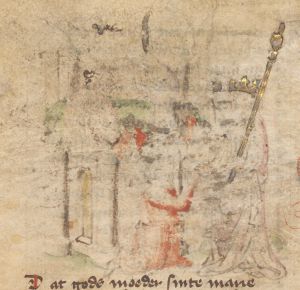 Dat gods moeder sinte marie